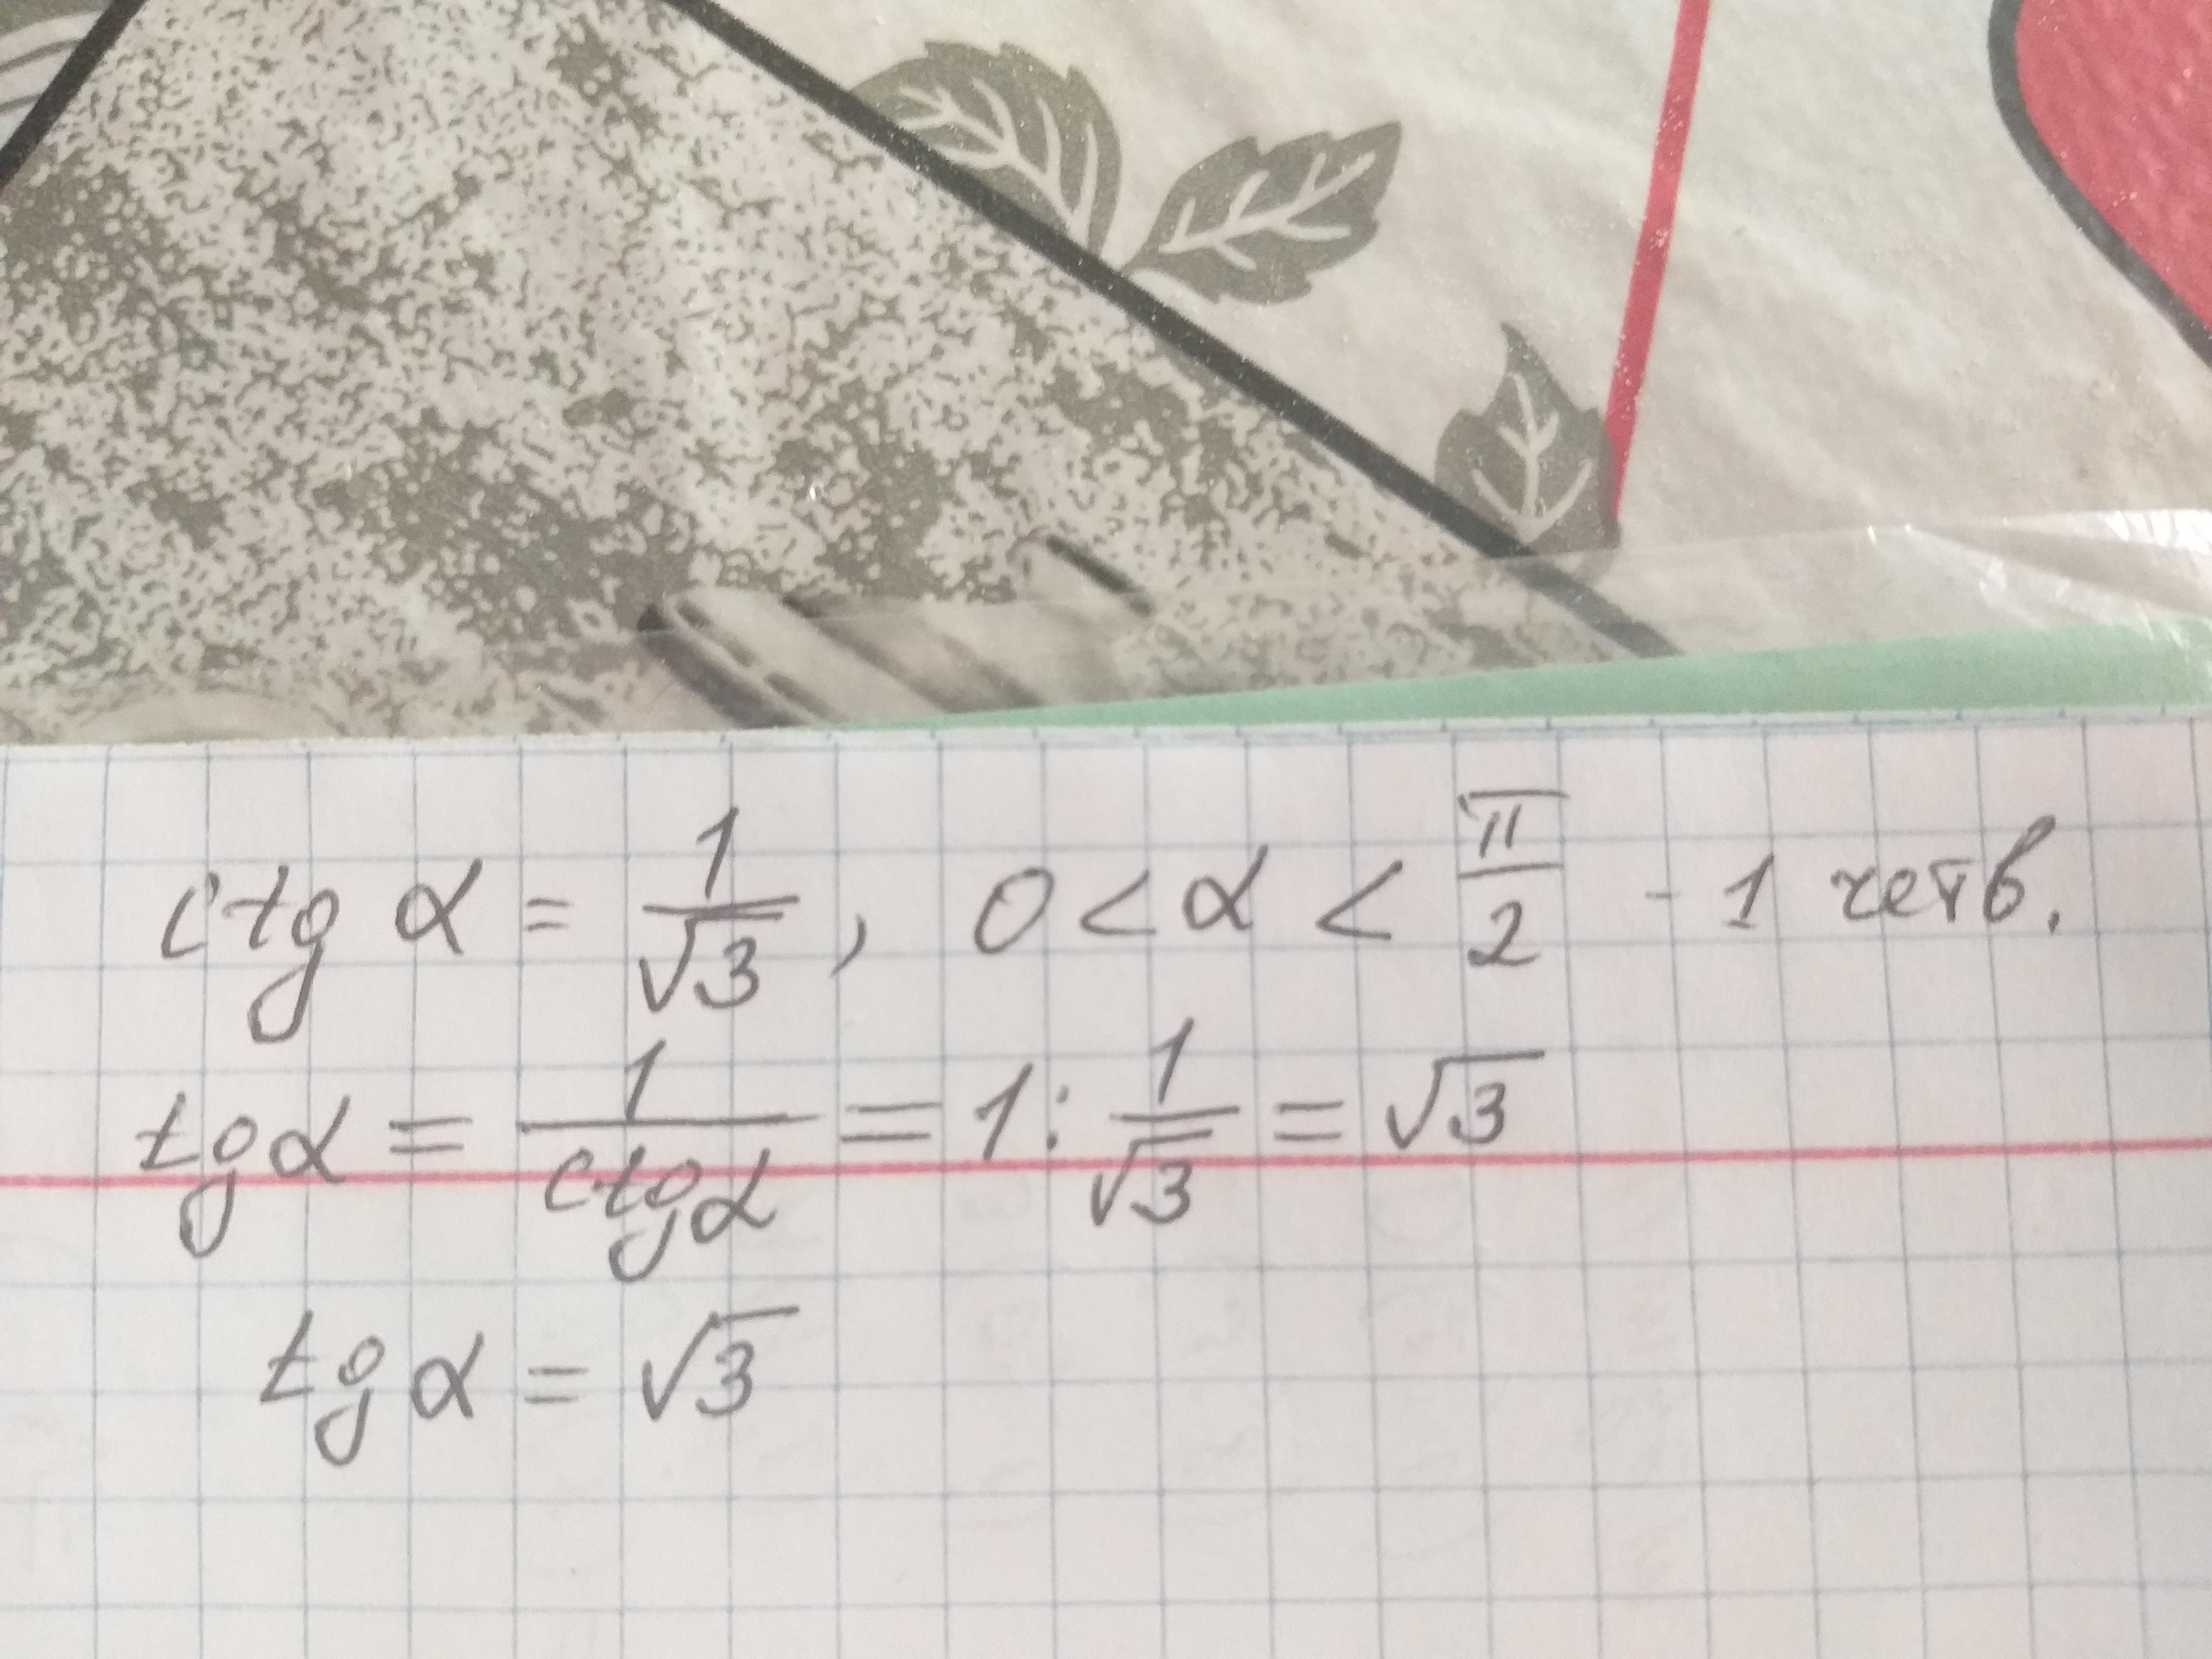 ctg α = 1/√3, 0 < α < π/2 - 1 четв.
tg α = 1/ctg α = 1 : 1/√3 = √3
tg α = √3